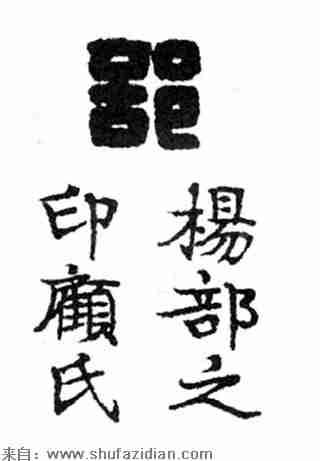 部
楊部之
印顧氏
来自：www.shufazidian.com